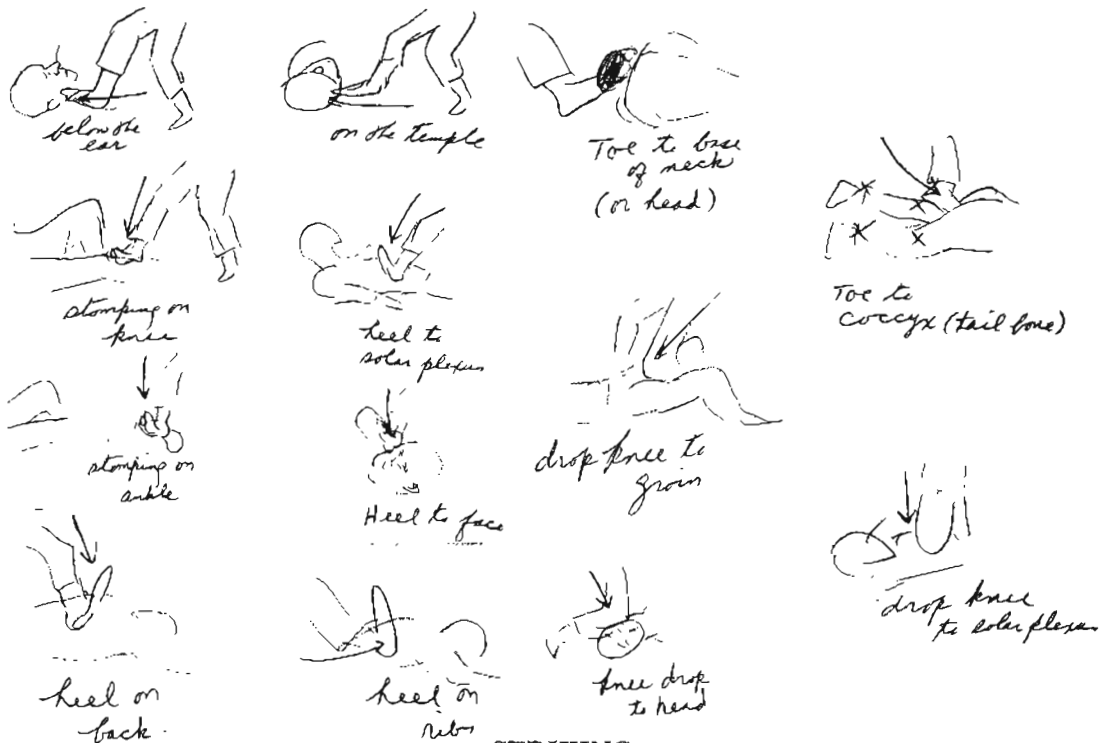 below the
ear
on the temple
Toe to base
of neck
(or head)
stomping on
knee
heel to
solar plexus
Toe to
coccyx (tail bone)
stomping on
ankle
Heel to face
drop knee to
groin
heel on
back.
heel on
ribs
knee drop
to head
drop knee
to solar plexus